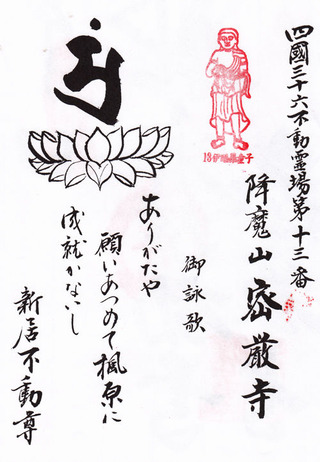 四國三十六不動霊場第十三番
降魔山 密厳寺
御詠歌
ありがたや
願いあつめて楓原に
成就かないし
新居不動尊